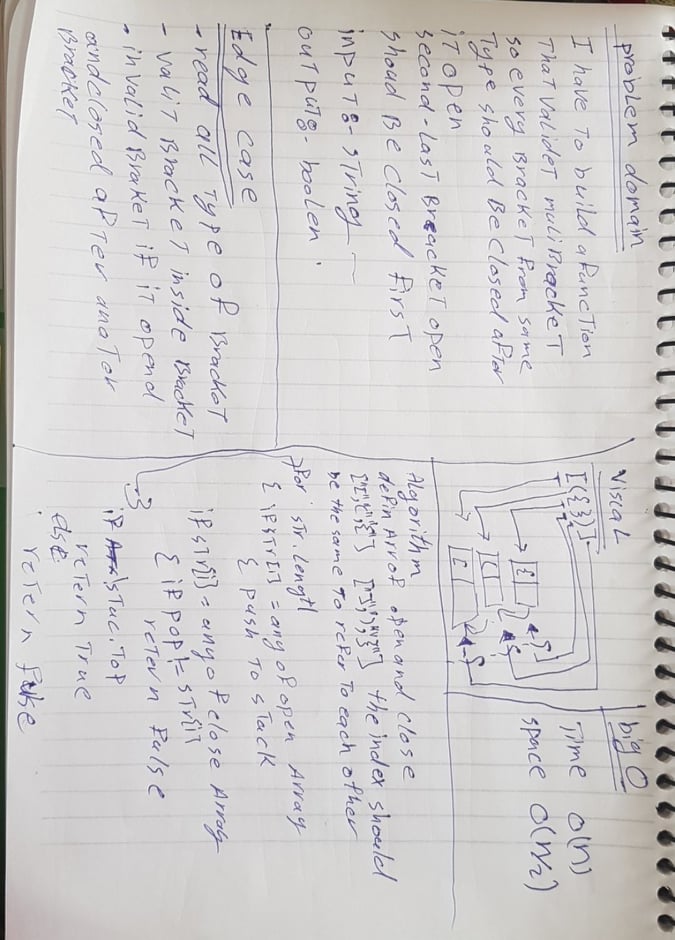 problem domain
I have to build a function
That validet muli Bracket
so every Bracket From same
Type should Be closed after
iT open
second-Last Bracket open
shoud Be closed First
input:- sTring
outpute:- boolen.
Edge case
- read all Type of Bracket
- valiT Bracket inside Bracket
- invalid Braket iF it opend
and closed aFter anoTor
Bracket
Visual
[({})]
big O
Time O(n)
space O(n/2)
Algorithm
defin Arr of open and close
the index should
be the same to refer to each other
For str.length
{ iF str[i] = any oF open Array
{ push to stack
iF STr[i] = any oF close Array
{ iF pop != sTr[i]
retern False
}
iF stac.Top
retern True
else
retern false